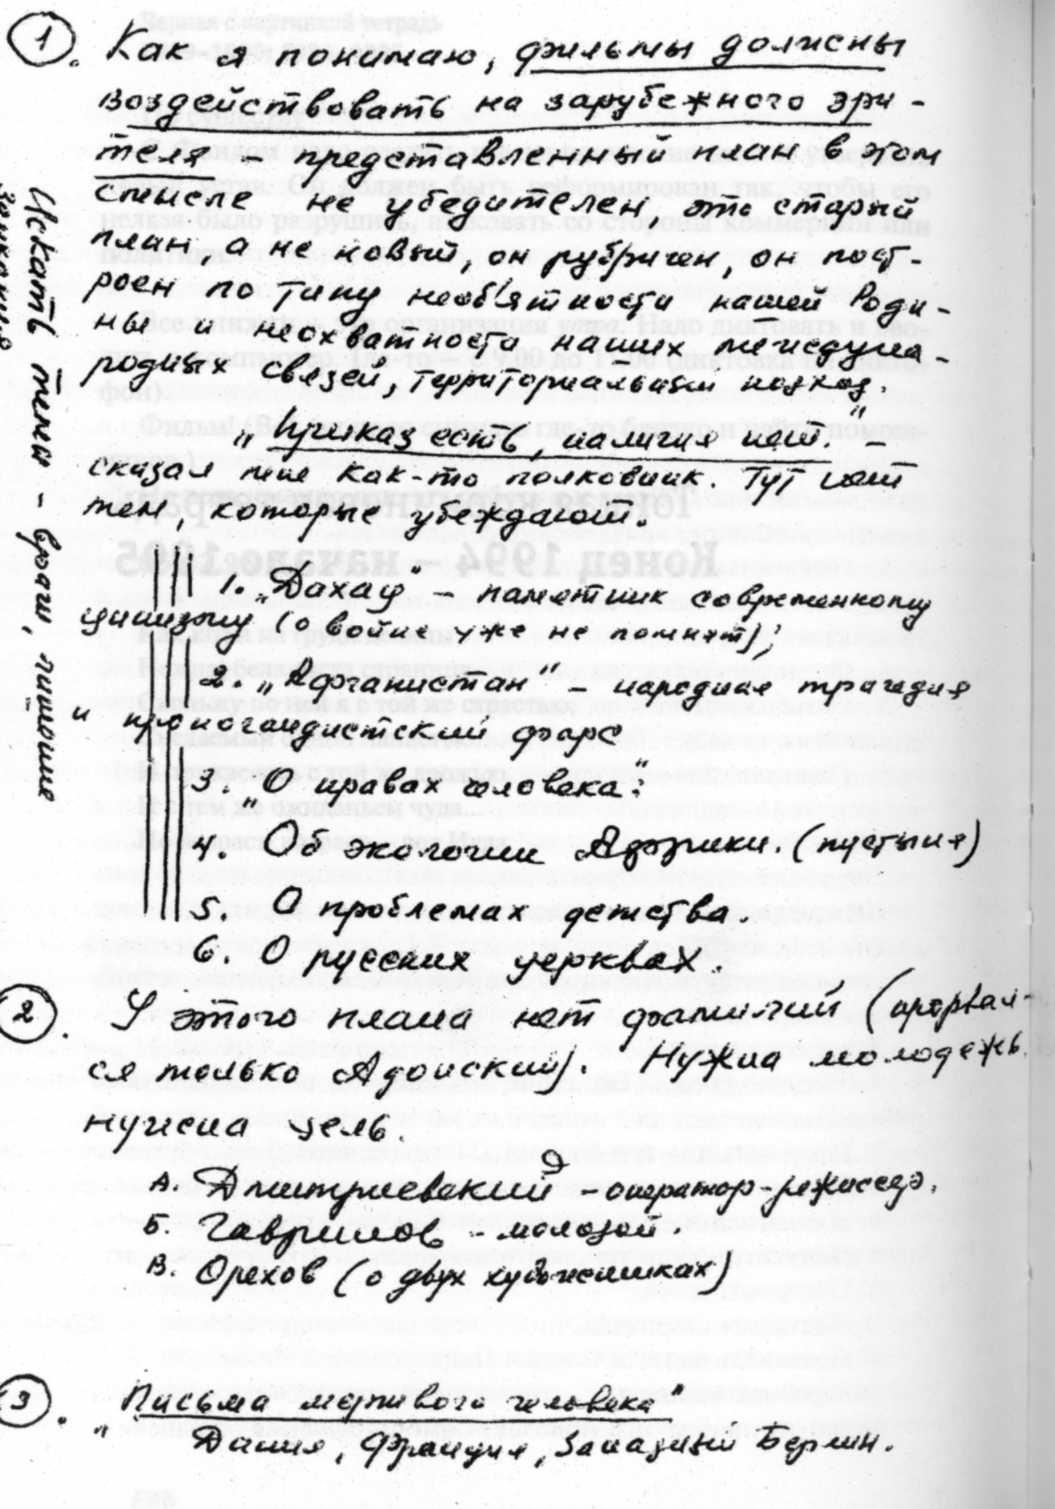 1. Как я понимаю, фильмы должны
воздействовать на зарубежного зри-
теля – представленный план в этом
смысле не убедителен это старый
план, а не новый, он рубричен, он пост-
роен по типу необъятности нашей Роди-
ны и неохватности наших междуна-
родных связей, территориальный подход.
„Приказ есть, наличия нет" –
сказал мне как-то полковник. Тут нет
тем, которые убеждают.
1. „Дахау" – памятник современному
цинизму (о войне уже не помнят);
2. „Афганистан" – народная трагедия
и пропогандистский фарс
3. „О правах человека".
4. Об экологии Африки. (пустыня)
5. О проблемах детства.
6. О русских церквах.
Искать темы – враги, пишющие
2. У этого плана нет фамилий (прорвал-
ся только Адойский). Нужна молодежь.
нужна цель.
А. Дмитриевский – оператор-режиссер.
Б. Гаврилов – молодой.
В. Орехов (о двух художниках)
3. „Письма мертвого человека"
Дания, Франция, Западный Берлин.